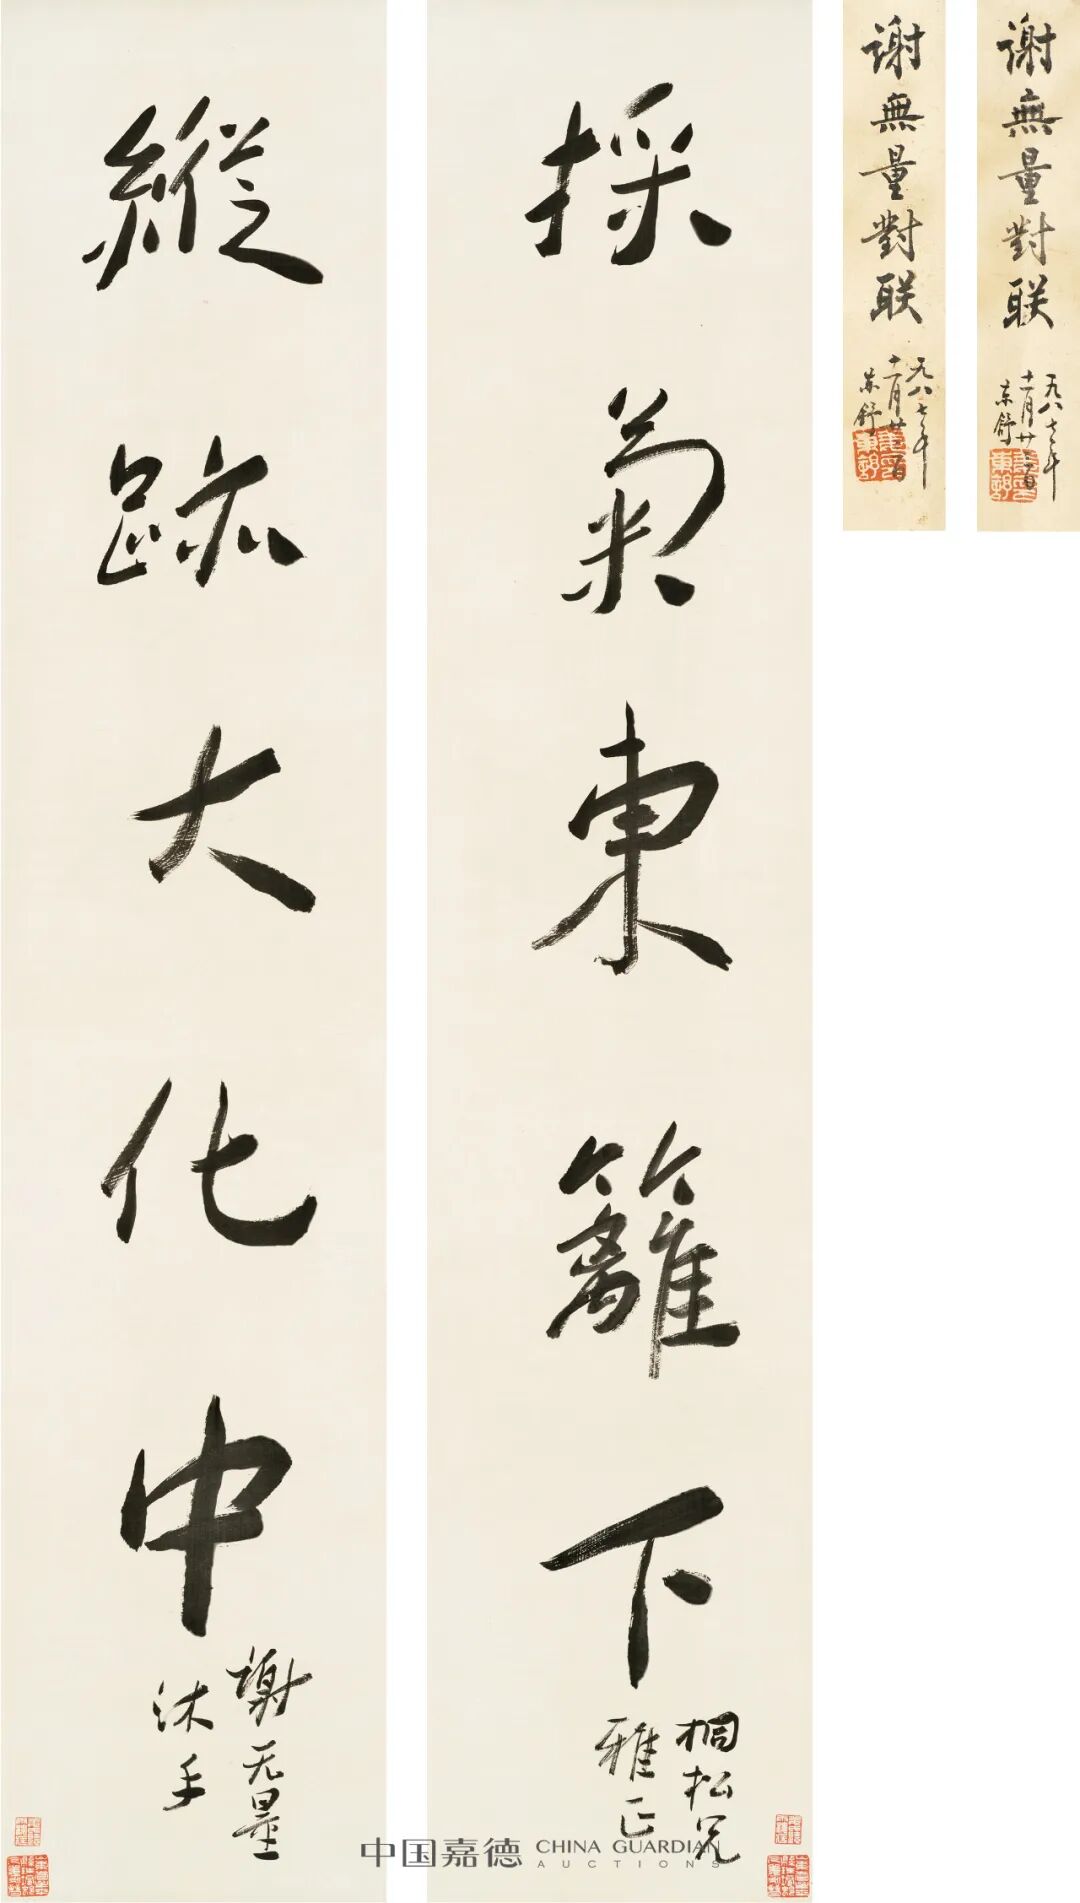 採菊東籬下
桐松兄
雅正
縱跡大化中
謝无量
沐手
谢無量對联
一九八七年
十一月廿一日
东舒
谢無量對联
一九八七年
十一月廿一日
东舒
中国嘉德 CHINA GUARDIAN
AUCTIONS